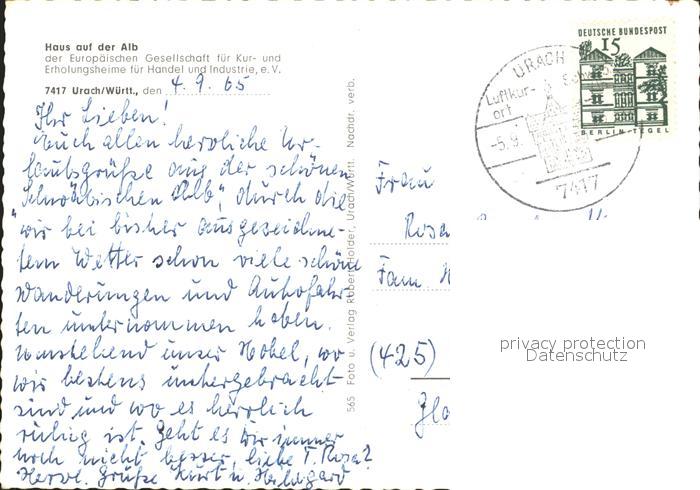 Haus auf der Alb
der Europäischen Gesellschaft für Kur- und
Erholungsheime für Handel und Industrie, e. V.
7417 Urach/Württ., den 4. 9. 65
Ihr Lieben!
Euch allen herzliche Ur-
laubsgrüße aus der schönen
"Schwäbischen Alb", durch die
wir bei bisher ausgezeichne-
tem Wetter schon viele schöne
Wanderungen und Autofahr-
ten unternommen haben.
Umstehend unser Hotel, wo
wir bestens untergebracht
sind und wo es herrlich
ruhig ist. Geht es Dir immer
noch nicht besser, liebe T. Rosa?
Herzl. Grüße Kurt u. Hildegard
565 Foto u. Verlag Robert Holder, Urach/Württ. Nachdr. verb.
DEUTSCHE BUNDESPOST
15
BERLIN-TEGEL
URACH
Luftkur-
ort
-5.9.
7417
Frau
Rosa
Fam.
(425)
privacy protection
Datenschutz